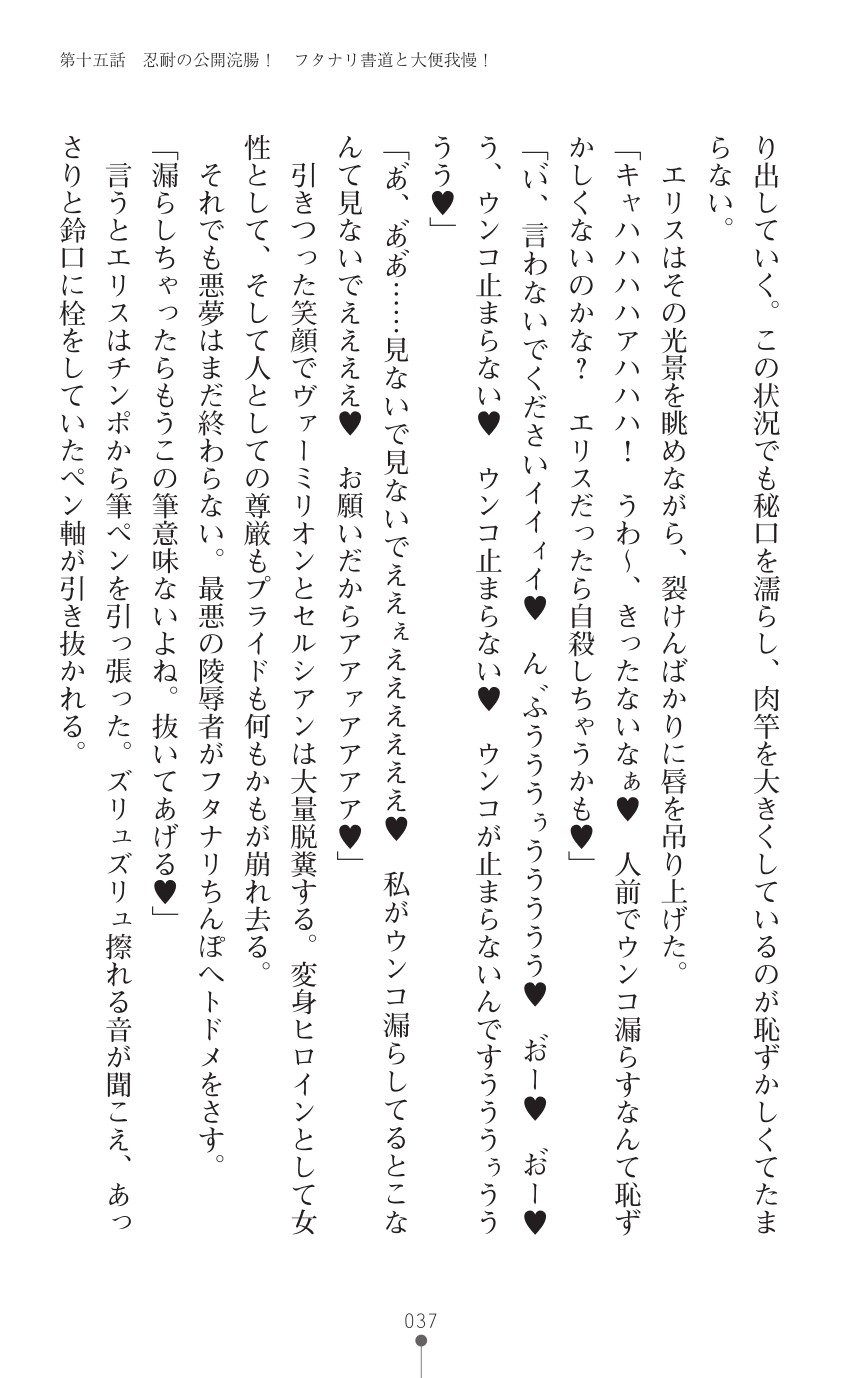 第十五話　忍耐の公開浣腸！　フタナリ書道と大便我慢！
り出していく。この状況でも秘口を濡らし、肉竿を大きくしているのが恥ずかしくてたま
らない。
　エリスはその光景を眺めながら、裂けんばかりに唇を吊り上げた。
「キャハハハハアハハハ！　うわ～、きったないなぁ♥　人前でウンコ漏らすなんて恥ず
かしくないのかな？　エリスだったら自殺しちゃうかも♥」
「い゙、言わないでくださいイイィイ♥　ん゙ぶううううぅううううう♥　お゙ー♥　お゙ー♥
う、ウンコ止まらない♥　ウンコ止まらない♥　ウンコが止まらないんですうううぅうう
うう♥」
「あ゙、あ゙あ゙……見ないで見ないでええぇええええええ♥　私がウンコ漏らしてるとこな
んて見ないでええええ♥　お願いだからアアァアアアア♥」
　引きつった笑顔でヴァーミリオンとセルシアンは大量脱糞する。変身ヒロインとして女
性として、そして人としての尊厳もプライドも何もかもが崩れ去る。
　それでも悪夢はまだ終わらない。最悪の陵辱者がフタナリちんぽへトドメをさす。
「漏らしちゃったらもうこの筆意味ないよね。抜いてあげる♥」
　言うとエリスはチンポから筆ペンを引っ張った。ズリュズリュ擦れる音が聞こえ、あっ
さりと鈴口に栓をしていたペン軸が引き抜かれる。
037